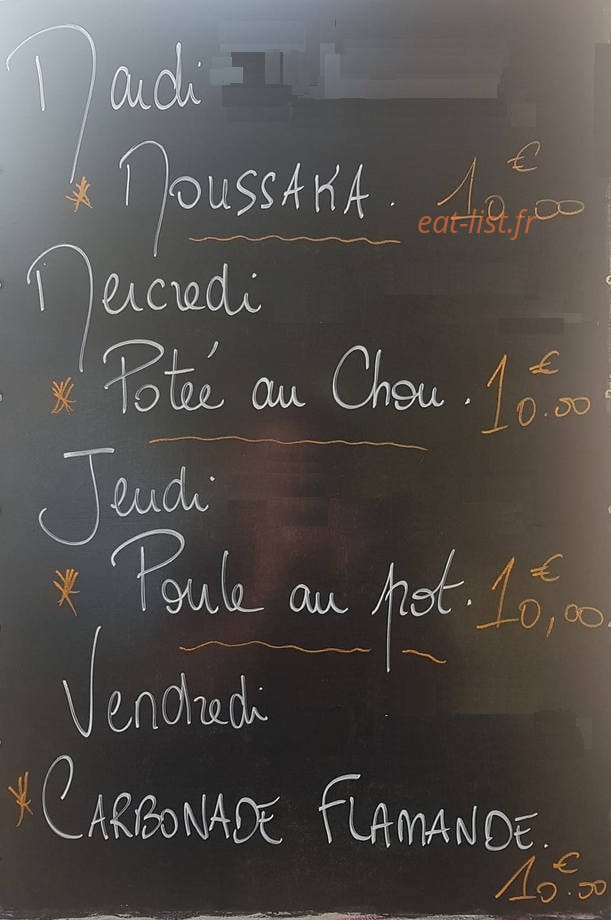 Mardi
* MOUSSAKA. 10.00€
eat-list.fr
Mercredi
* Potée au Chou. 10.00€
Jeudi
* Poule au pot. 10,00€
Vendredi
* CARBONADE FLAMANDE.
10.00€